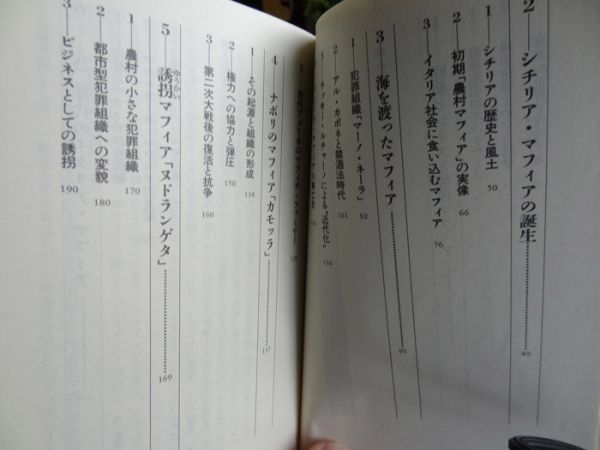 2―シチリア・マフィアの誕生……49
1―シチリアの歴史と風土 50
2―初期「農村マフィア」の実像 66
3―イタリア社会に食い込むマフィア 76
3―海を渡ったマフィア……91
1 犯罪組織「マーノ・ネーラ」 92
2―アル・カポネと禁酒法時代 101
ラッキー・ルチャーノによる"近代化" 110
4―ナポリのマフィア「カモッラ」……137
1―その起源と組織の形成 138
2―権力への協力と弾圧 150
3―第二次大戦後の復活と抗争 160
5―誘拐マフィア「ヌドランゲタ」……169
ゆうかい
1―農村の小さな犯罪組織 170
2―都市型犯罪組織への変貌 180
3―ビジネスとしての誘拐 190